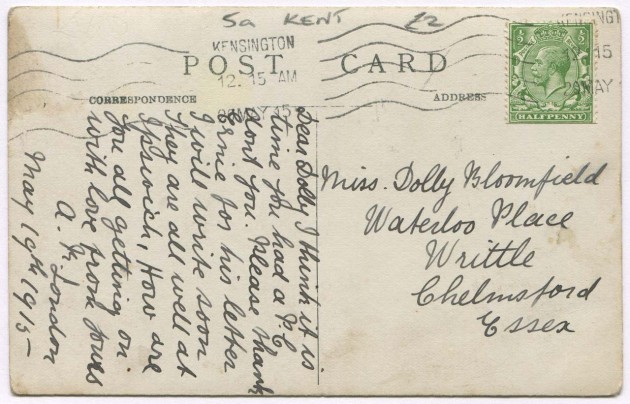 5a KENT £2
KENSINGTON
12.15 AM
MAY 15
KENSINGT
15
MAY
HALFPENNY
POST CARD
CORRESPONDENCE
ADDRESS
Dear Dolly I think it is
time you had a P.C
dont you. Please thank
Ernie for his letter
I will write soon
They are all well at
Ipswich, How are
you all getting on
with love from yours
A. K. London
May 19th 1915
Miss. Dolly Bloomfield
Waterloo Place
Writtle
Chelmsford
Essex